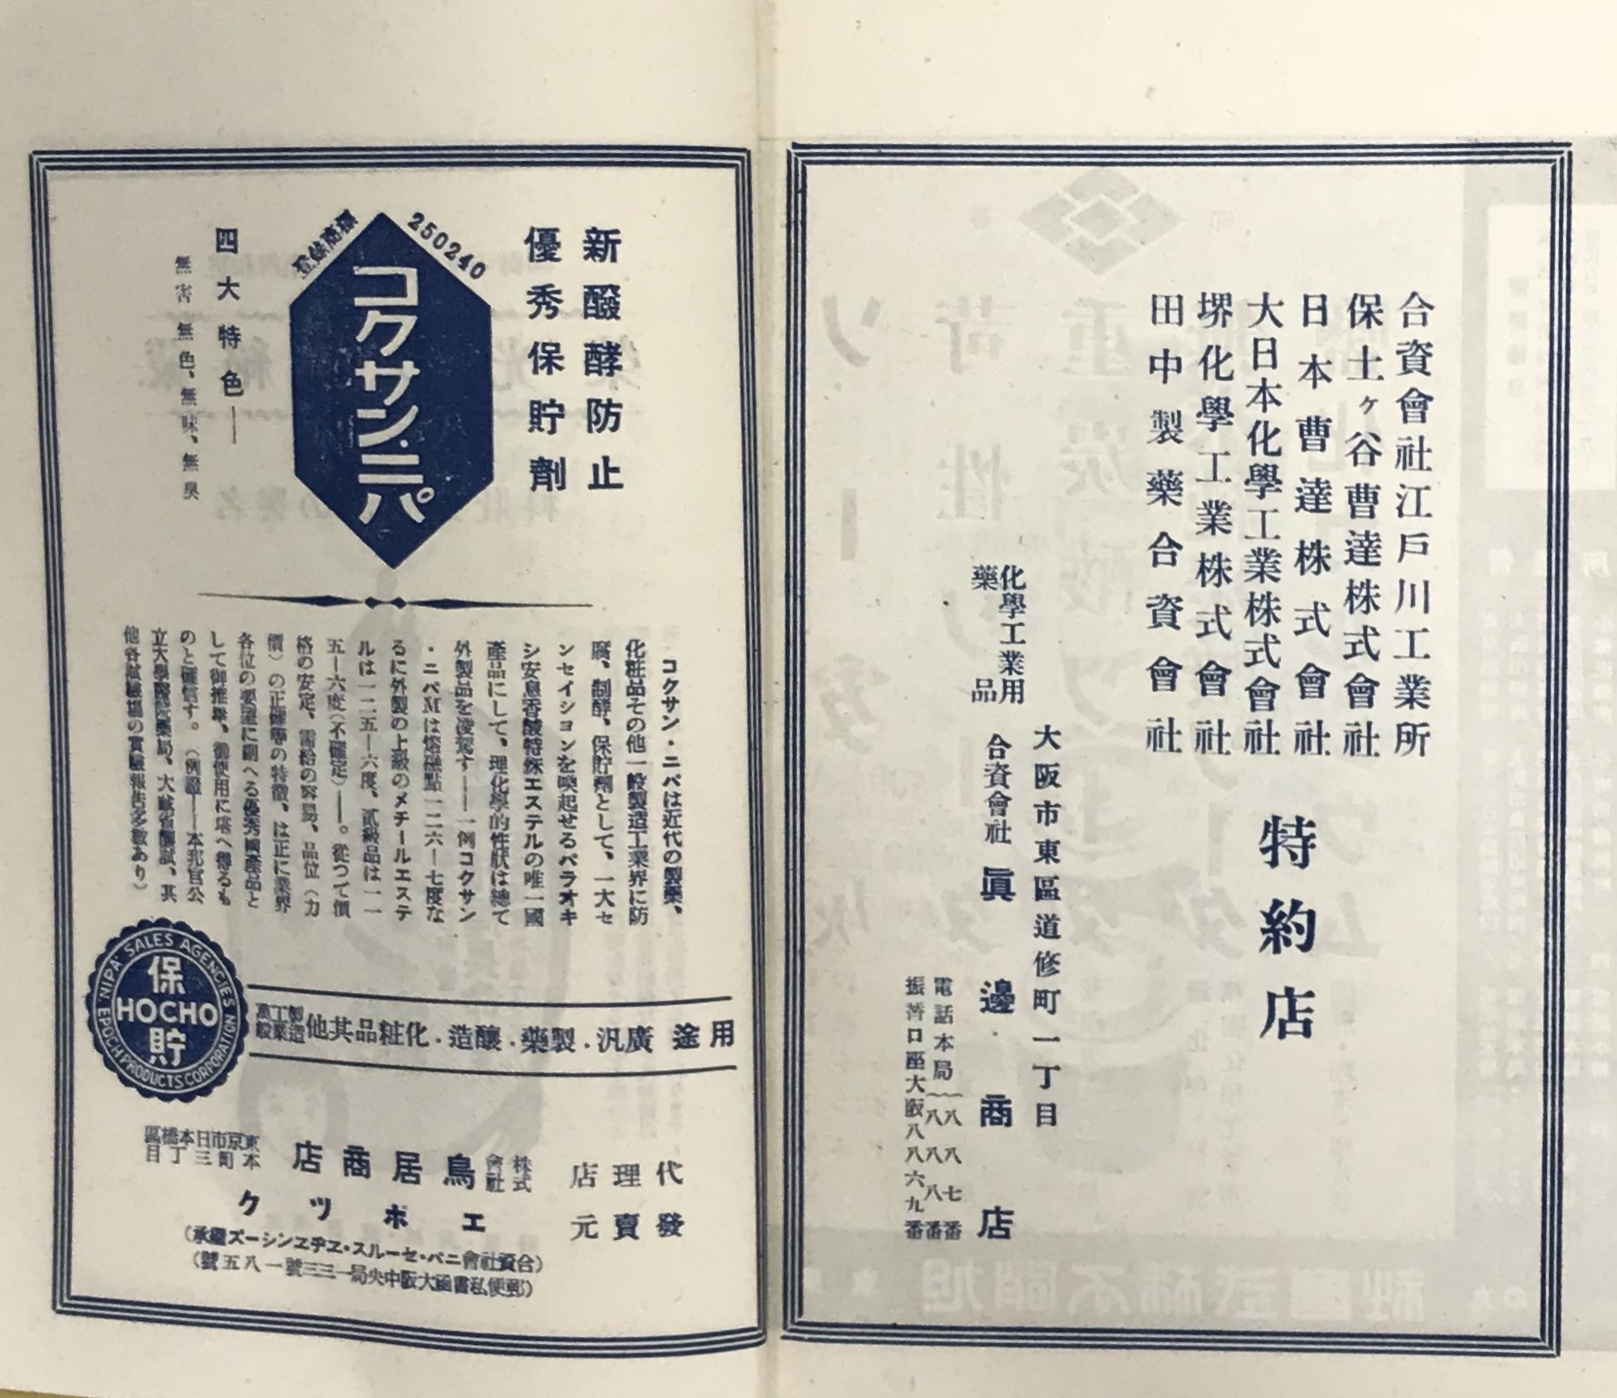 合資會社江戸川工業所
保土ヶ谷曹達株式會社
日本曹達株式會社
大日本化學工業株式會社
堺化學工業株式會社
田中製藥合資會社
特約店
化學工業用
藥品
大阪市東區道修町一丁目
合資會社 眞邊商店
電話本局 八八七番
八八八番
振替口座大阪八八六九番
新醱酵防止
優秀保貯劑
登録商標
250240
コクサン・ニパ
四大特色──
無害、無色、無味、無臭
コクサン・ニパは近代の製藥、
化粧品その他一般製造工業界に防
腐、制酵、保貯劑として、一大セ
ンセイシヨンを喚起せるパラオキ
シ安息香酸特殊エステルの唯一國
產品にして、理化學的性狀は總て
外製品を凌駕す──一例コクサン
・ニパMは熔融點一二六—七度な
るに外製の上級のメチールエステ
ルは一二五—六度、貳級品は一一
五—六度(不確定)──。從つて價
格の安定、需給の容易、品位(力
價)の正確等の特徵、は正に業界
各位の要望に副へる優秀國產品と
して御推擧、御使用に堪へ得るも
のと確信す。(例證──本邦官公
立大學醫院藥局、大藏省釀試、其
他各試驗場の實驗報告多數あり)
"NIPA" SALES AGENCIES
保
HOCHO
貯
EPOCH PRODUCTS CORPORATION
用途 廣汎・製藥・釀造・化粧品其他製造工業萬般
代理店 株式會社 鳥居商店 東京市日本橋區本町三丁目
發賣元 エポツク
(合資社會ニパ・セールス・エヂエンシーズ繼承)
(郵便私書函大阪中央局一三三號一八五號)